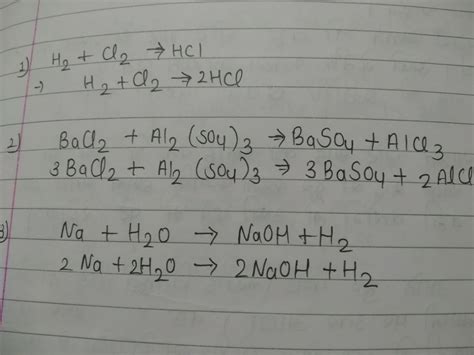 1) H₂ + Cl₂ → HCl
→ H₂ + Cl₂ → 2HCl
2) BaCl₂ + Al₂ (SO₄)₃ → BaSO₄ + AlCl₃
3BaCl₂ + Al₂ (SO₄)₃ → 3BaSO₄ + 2AlCl
3) Na + H₂O → NaOH + H₂
2Na + 2H₂O → 2NaOH + H₂